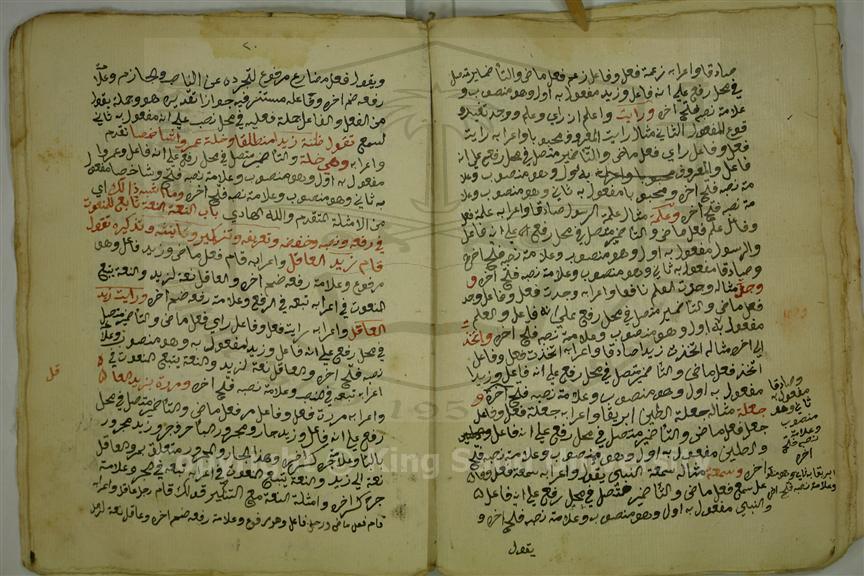 صادقا واعرابه زعمة فعل وفاعل زعم فعل ماض والتا ضمير متصل
في محل رفع على انه فاعل وزيد مفعول به اول وهو منصوب و
علامة نصبه فتح اخره ورايت واعلم ان راي وعلم ووجد
المفعول الثاني مثال رايت المعروف محبوبا واعرابه رايت
فعل وفاعل راي فعل ماض والتا ضمير متصل في محل رفع على ان
فاعل والمعروف مفعول به اول وهو منصوب وعلا
مة نصبه فتح اخره ومحبوبا مفعول به ثاني وهو منصوب وعلا
مة نصبه فتح اخره وعلمة مثاله علمة الرسول صادقا واعرابه علمة فعل
وفاعل علم فعل ماض والتا ضمير متصل في محل رفع على انه فاعل
والرسول مفعول به اول وهو منصوب وعلامة نصبه فتح اخره
وصادقا مفعول به ثاني وهو منصوب وعلامة نصبه فتح اخره و
وجدة مثاله وجدت العلم نافعا واعرابه وجدت فعل وفاعل وجد
فعل ماض والتا ضمير متصل في محل رفع على انه فاعل والعلم
مفعول به اول وهو منصوب وعلامة نصبه فتح اخره واتخذ
مثاله اتخذت زيدا صادقا واعرابه اتخذت فعل وفاعل
اتخذ فعل ماض والتا ضمير متصل في محل رفع على انه فاعل وزيدا
مفعول به اول وهو منصوب وعلامة نصبه فتح اخره و
جعلة مثاله جعلة الطين ابريقا واعرابه جعلة فعل وفاعل
جعل فعل ماض والتا ضمير متصل في محل رفع على انه فاعل
والطين مفعول به اول وهو منصوب وعلامة نصبه فتح
اخره وسمعة مثاله سمعة النبي يقول واعرابه سمعة فعل وفا
عل سمع فعل ماض والتا ضمير متصل في محل رفع على انه فاعل
والنبي مفعول به اول وهو منصوب وعلامة نصبه فتح اخره و
يقول
وصادقا
مفعول به
ثاني وهو
منصوب
وعلامة
نصبه فتح
اخره
ابريقا ثاني وهو
وعلامة نصبه فتح اخره
ويقول فعل مضارع مرفوع لتجرده عن الناصب والجازم وعلا
رفعه ضم اخره وفاعله مستتر فيه جوازا تقديره هو وجملة يقول
من الفعل والفاعل جملة فعلية في محل نصب على انه مفعول به ثاني
لسمع تقول ظننة زيدا منطلقا وخلة عمروا شاخصا تقدم
واعرابه وهي خلة والتا ضمير متصل في محل رفع على انه فاعل وعمروا
مفعول به اول وهو منصوب وعلامة نصبه فتح وشاخصا مفعول
به ثاني وهو منصوب وعلامة نصبه فتح اخره وما اشبه ذالك اي
من الامثلة المتقدم والله الهادي باب النعة النعة تابع للمنعوت
في رفعه ونصبه وخفضه وتعريفه وتنكيره وتانيثه وتذكيره تقول
قام زيد العاقل واعرابه قام فعل ماض وزيد فاعل وهو
مرفوع وعلامة رفعه ضم اخره والعاقل نعة لزيد والنعة يتبع
المنعوت في اعرابه تبعه في الرفع وعلامة رفعه ضم اخره ورايت زيد
العاقل واعرابه رايت فعل وفاعل راي فعل ماض والتا ضمير متصل
في محل رفع على انه فاعل وزيد مفعول به وهو منصوب وعلا
نصبه فتح اخره والعاقل نعة لزيد والنعة يتبع المنعوت في
اعرابه تبعه في النصب وعلامة نصبه فتح اخره ومررة بزيد العا
واعرابه مررة فعل وفاعل مر فعل ماض والتا ضمير متصل في محل
رفع على انه فاعل وزيد جار ومجرور الباء حرف جر وزيد مجرور
وهذا الجار والمجرور متعلق بمر والعاقل
نعة لزيد والنعة يتبع المنعوت في اعرابه تبعه في الجر وعلامة
جره كسر اخره وامثلة النعة مع التنكير قولك قام رجل عاقل واعرابه
قام فعل ماض ورجل فاعل وهو مرفوع وعلامة رفعه ضم اخره وعاقل نعة لرجل
قل
٢٠